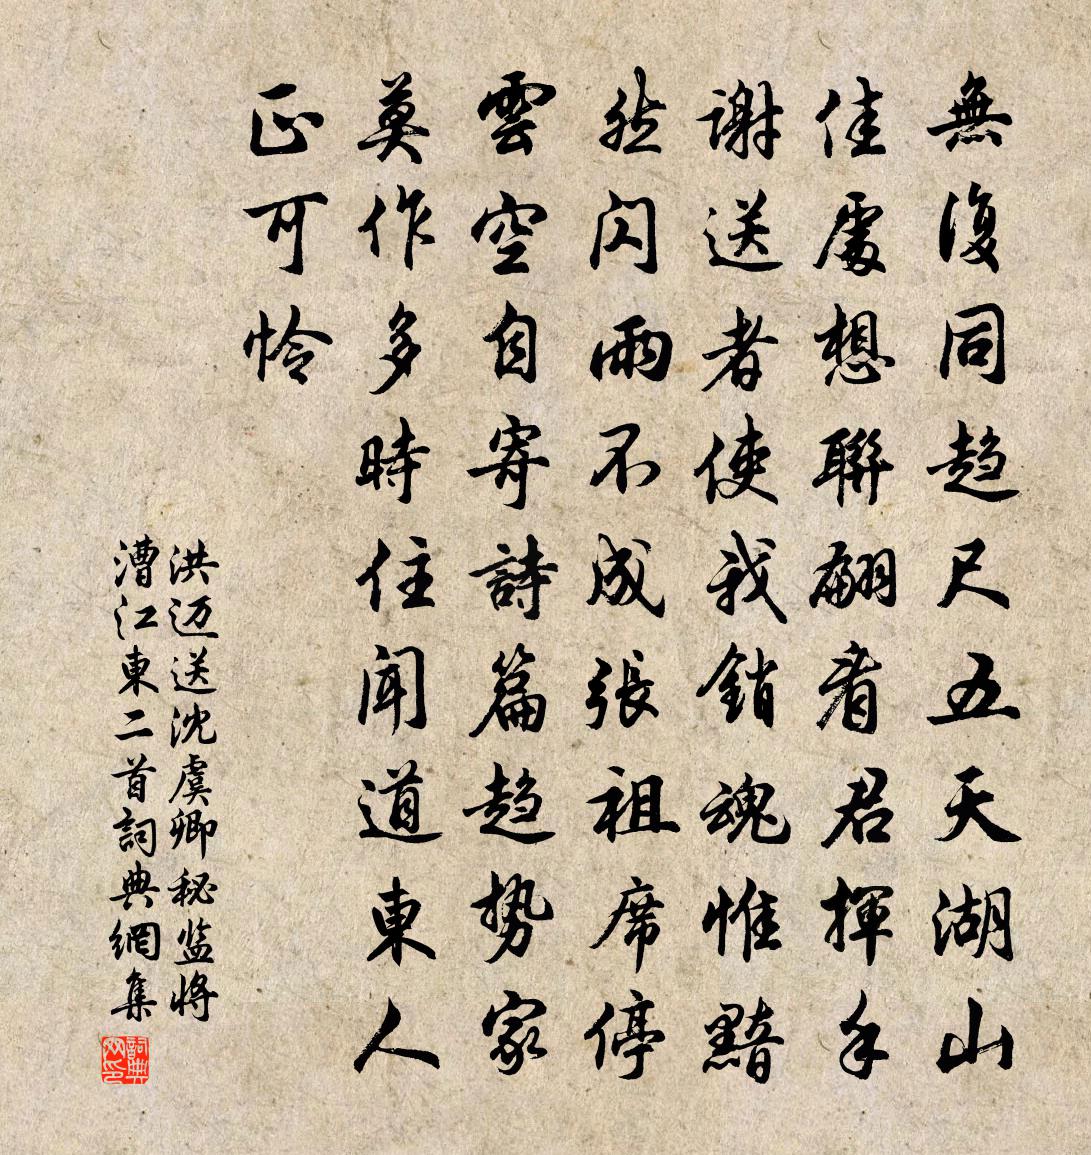 無復同趨尺五天湖山
佳處想聯翩看君揮手
謝送者使我銷魂惟黯
然閃雨不成張祖席停
雲空自寄詩篇趨勢家
莫作多時住聞道東人
正可怜
洪迈送沈虞卿秘监將
漕江東二首詞典網集
詞典
网印